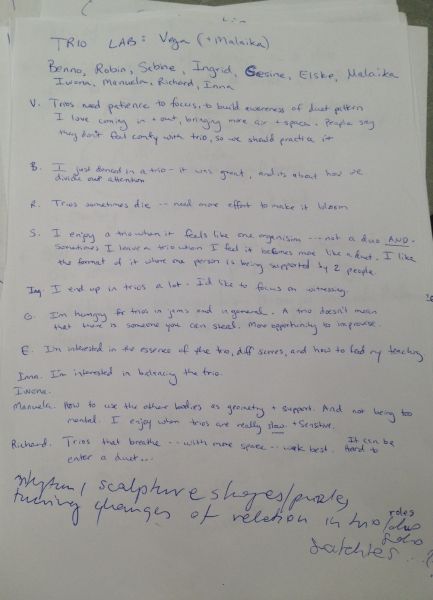 TRIO LAB: Vega (+ Malaika)
Benno, Robin, Sabine, Ingrid, Gesine, Elske, Malaika
Iwona, Manuela, Richard, Inna
V. Trios need patience to focus, to build awareness of duet pattern
I love coming in + out, bringing more air + space. People say
they don't feel comfy with trio, so we should practice it
B. I just danced in a trio - it was great, and its about how we
divide our attention
R. Trios sometimes die -- need more effort to make it bloom
S. I enjoy a trio when it feels like one organism --- not a duo AND.
Sometimes I leave a trio when I feel it becomes more like a duet. I like
the format of it where one person is being supported by 2 people.
Ing. I end up in trios a lot. I'd like to focus on witnessing.
G. I'm hungry for trios in jams and in general. A trio doesn't mean
that there is someone you can steal. More opportunity to improvise.
E. I'm interested in the essence of the trio, diff scores, and how to feed my teaching
Inna. I'm interested in balancing the trio.
Iwona.
Manuela. How to use the other bodies as geometry + support. And not being too
mental. I enjoy when trios are really slow + sensitive.
Richard. Trios that breathe --- with more space -- work best. It can be
hard to
enter a duet...
rhythm, sculpture shapes/puzzles
turning changes of relation in trio/duo
roles
solo